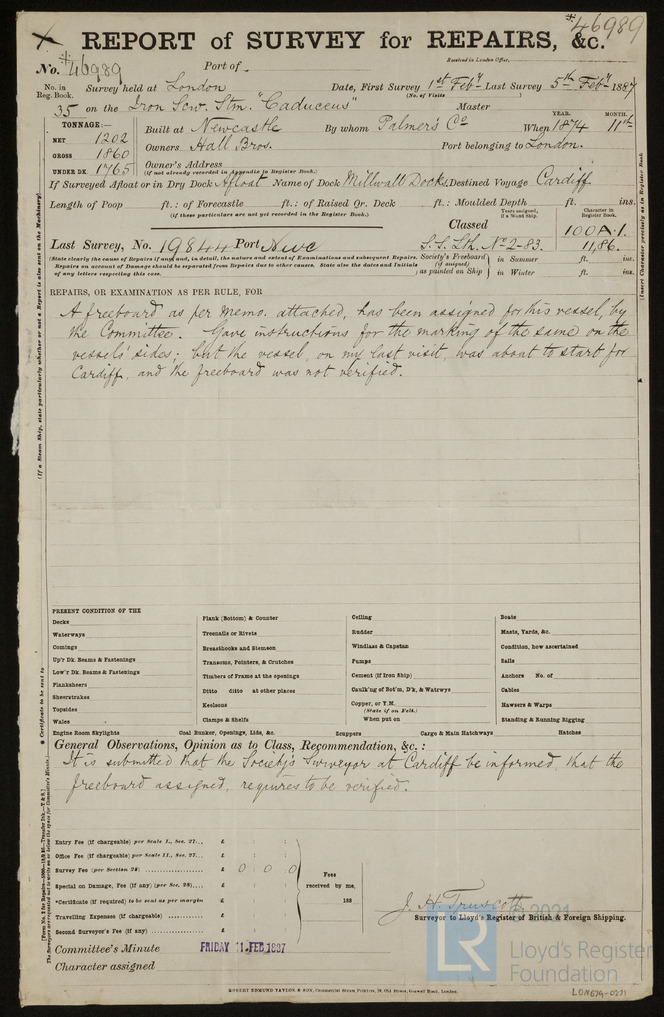 #46989
REPORT of SURVEY for REPAIRS, &c.
Received in London Office,
No. #46989 Port of
No. in Reg. Book. Survey held at London Date, First Survey 1st Feby Last Survey 5th Feby 1887
(No. of Visits )
35 on the Iron Scw. Stm. "Caduceus" Master
TONNAGE:—
NET 1202
GROSS 1860
UNDER DK. 1765
YEAR. MONTH.
Built at Newcastle By whom Palmer's Co When 1874 11th
Owners Hall Bros. Port belonging to London.
Owner's Address
(if not already recorded in Appendix to Register Book.)
If Surveyed Afloat or in Dry Dock Afloat Name of Dock Millwall Docks. Destined Voyage Cardiff
Length of Poop ft.: of Forecastle ft.: of Raised Qr. Deck ft.: Moulded Depth ft. ins.
(if these particulars are not yet recorded in the Register Book.)
Years assigned, if a Wood Ship. Character in Register Book.
Classed 100A.1.
Last Survey, No. 19844 Port Nwc S.S. Lh. No 2-83. 11,86.
(State clearly the cause of Repairs if any and, in detail, the nature and extent of Examinations and subsequent Repairs.
Repairs on account of Damage should be separated from Repairs due to other causes. State also the dates and Initials
of any letters respecting this case.
Society's Freeboard (if assigned) as painted on Ship
in Summer ft. ins.
in Winter ft. ins.
REPAIRS, OR EXAMINATION AS PER RULE, FOR
A freeboard as per Memo. attached, has been assigned for this vessel, by
the Committee. Gave instructions for the marking of the same on the
vessels' sides; but the vessel, on my last visit, was about to start for
Cardiff, and the freeboard was not verified.
(If a Steam Ship, state particularly whether or not a Report is also sent on the Machinery)
(Insert Character precisely as in Register Book
PRESENT CONDITION OF THE
Decks
Waterways
Comings
Up'r Dk. Beams & Fastenings
Low'r Dk. Beams & Fastenings
Planksheers
Sheerstrakes
Topsides
Wales
Engine Room Skylights
Plank (Bottom) & Counter
Treenails or Rivets
Breasthooks and Stemson
Transoms, Pointers, & Crutches
Timbers of Frame at the openings
Ditto ditto at other places
Keelsons
Clamps & Shelfs
Coal Bunker, Openings, Lids, &c.
Ceiling
Rudder
Windlass & Capstan
Pumps
Cement (if Iron Ship)
Caulk'ng of Bot'm, D'k, & Watrwys
Copper, or Y.M.
(State if on Felt.)
When put on
Scuppers
Cargo & Main Hatchways
Boats
Masts, Yards, &c.
Condition, how ascertained
Sails
Anchors No. of
Cables
Hawsers & Warps
Standing & Running Rigging
Hatches
General Observations, Opinion as to Class, Recommendation, &c.:
It is submitted that the Society's Surveyor at Cardiff be informed, that the
freeboard assigned, requires to be verified.
* Certificate to be sent to
Entry Fee (if chargeable) per Scale I., Sec. 27... £ : :
Office Fee (if chargeable) per Scale II., Sec. 27... £ : :
Survey Fee (per Section 28) £ 0 : 0 : 0
Special on Damage, Fee (if any) (per Sec. 28)... £ : :
*Certificate (if required) to be sent as per margin £ : :
Travelling Expenses (if chargeable) £ : :
Second Surveyor's Fee (if any) £ : :
Fees received by me,
188
J. H. Truscott
Surveyor to Lloyd's Register of British & Foreign Shipping.
Committee's Minute FRIDAY 11 FEB 1887
Character assigned
ROBERT EDMUND TAYLOR & SON, Commercial Steam Printers, 19, Old Street, Goswell Road, London.
© 2021
LR
Lloyd's Register
Foundation
LON679-0231